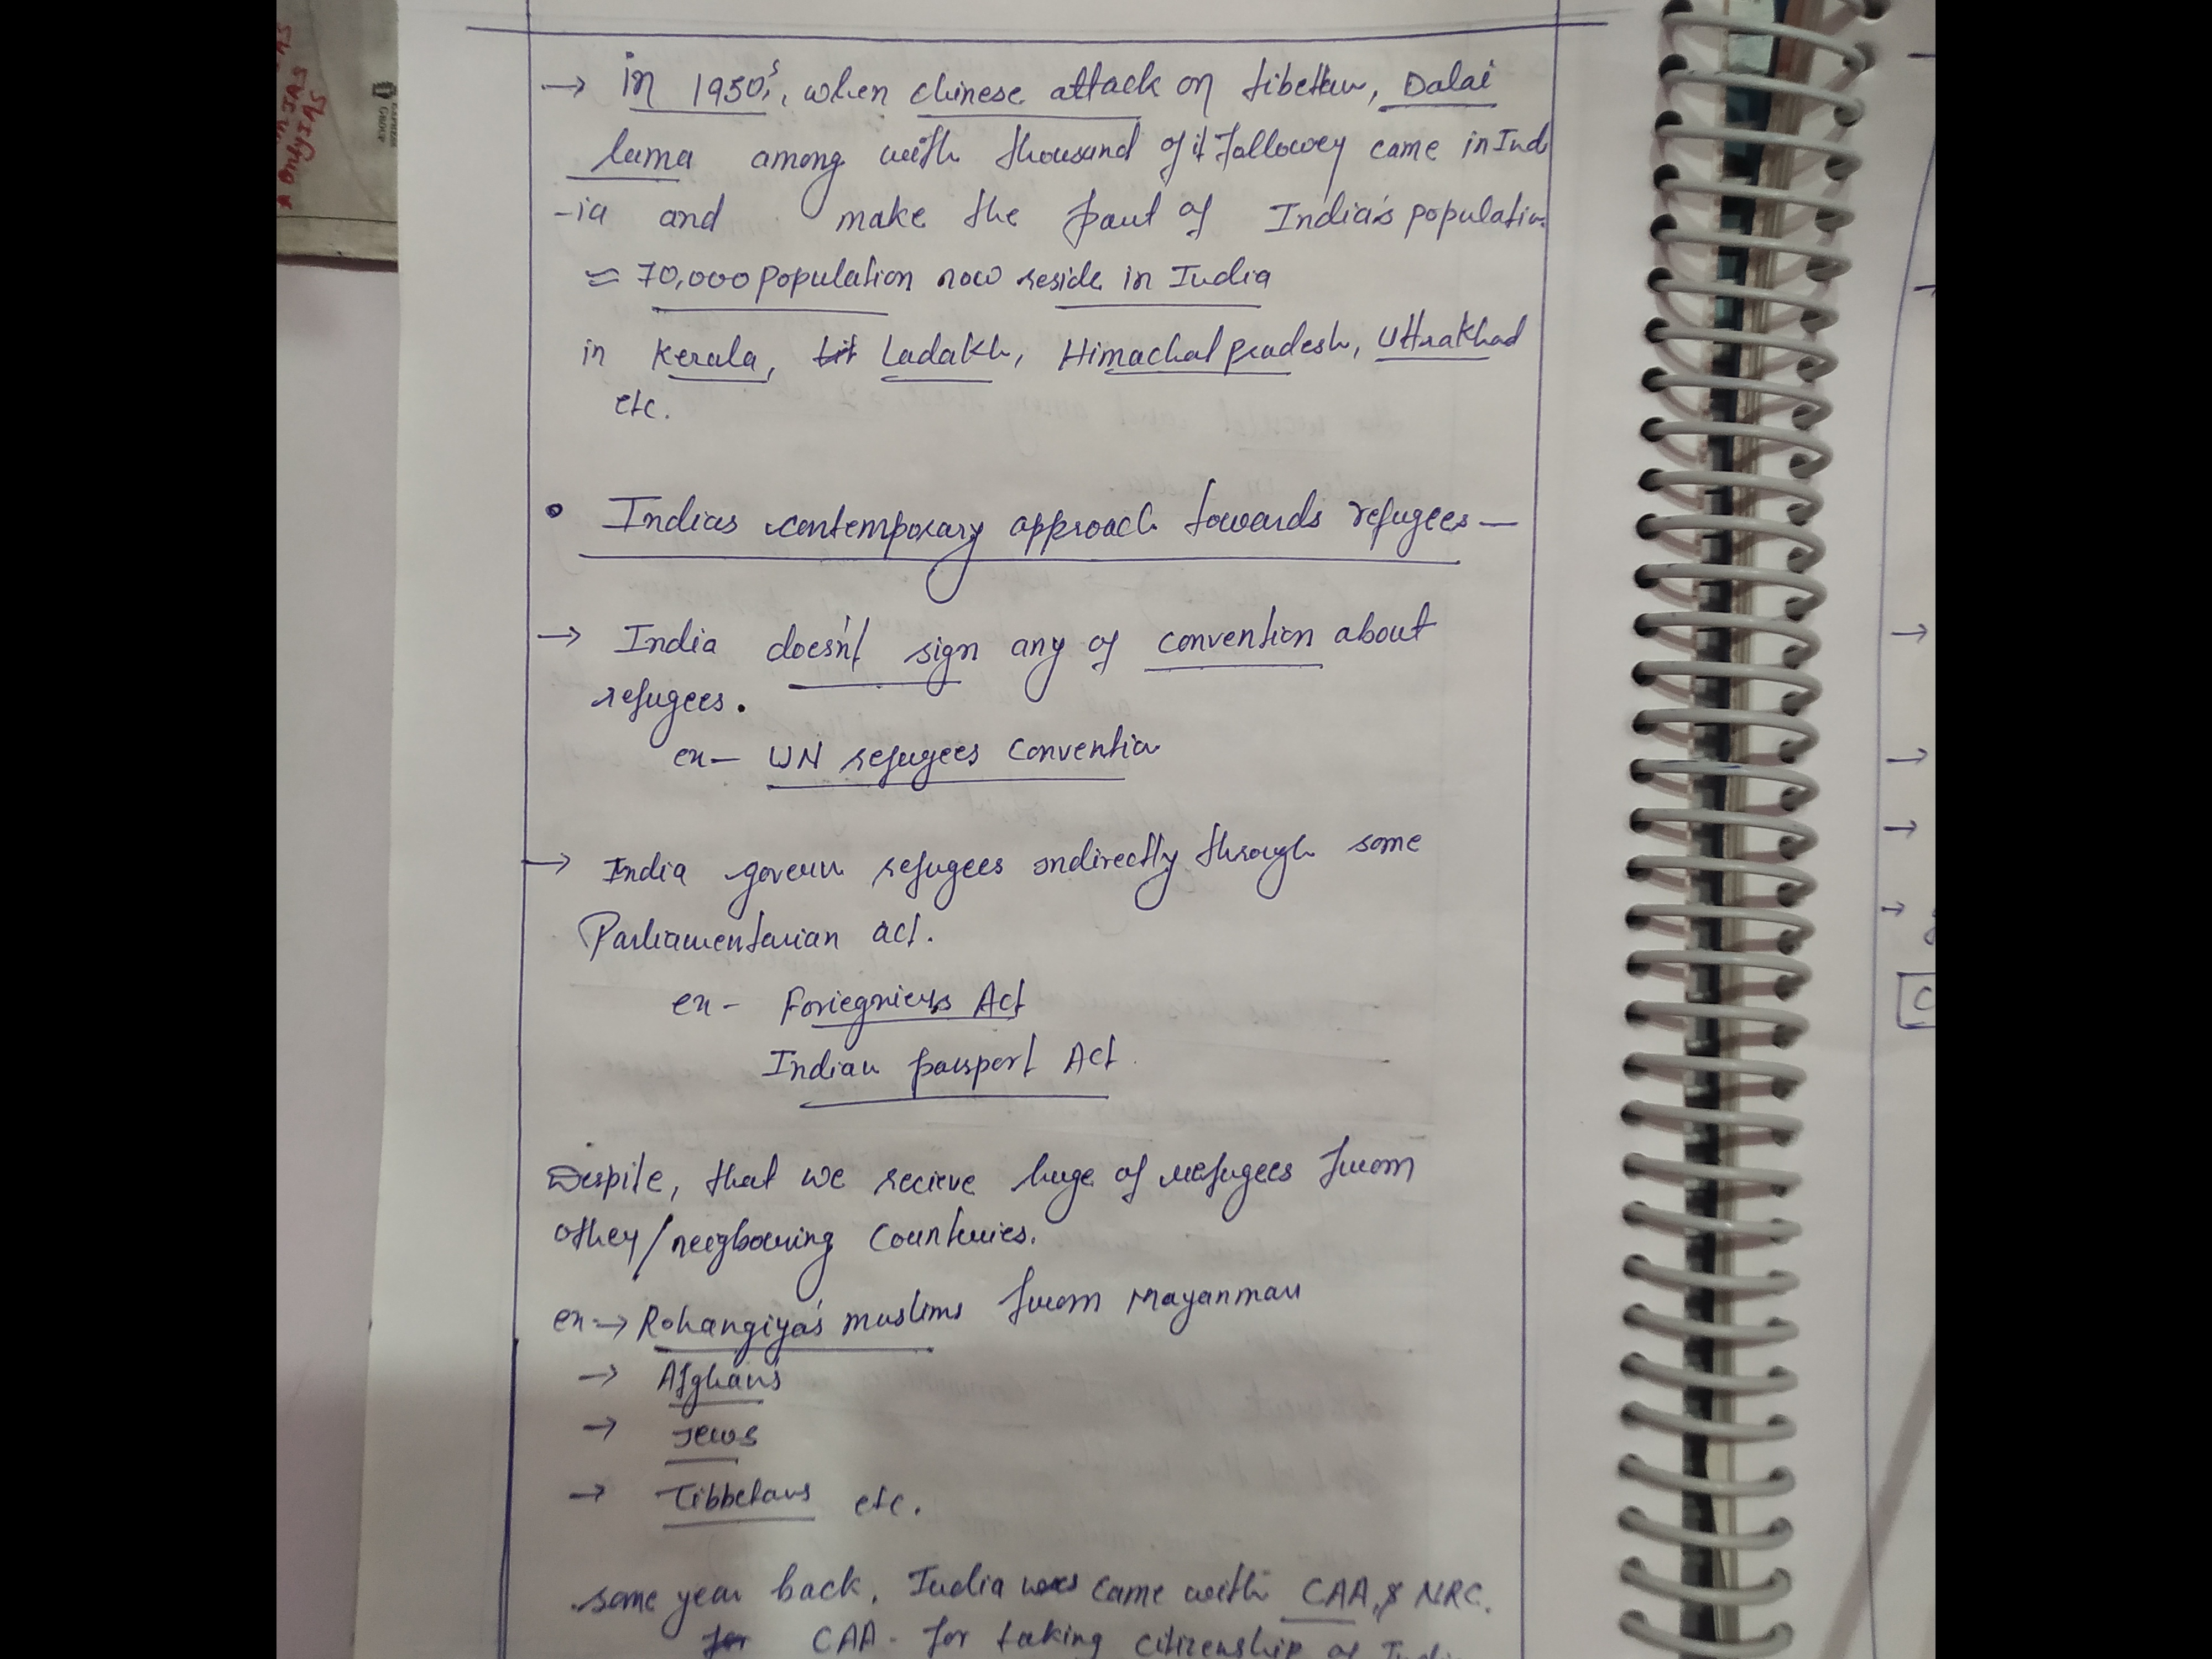 → in 1950's, when chinese attack on tibetan, Dalai
lama among with thousand of it follower came in Ind
-ia and make the part of India's population
≈ 70,000 population now reside in India
in Kerala, Ladakh, Himachal pradesh, Uttrakhad
etc.
• Indias contemporary approach towards refugees —
→ India doesn't sign any of convention about
refugees.
ex— UN refugees convention
→ India govern refugees indirectly through some
Parliamentarian act.
ex - Foriegniers Act
Indian passport Act.
Despite, that we recieve huge of refugees from
other/neigbouring Countries.
ex→ Rohangiya's muslims from Mayanmar
→ Afghans
→ Jews
→ Tibbetans etc.
some year back, India came with CAA & NRC.
for CAA - for taking citizenship of India
OnlyIAS
GROUP